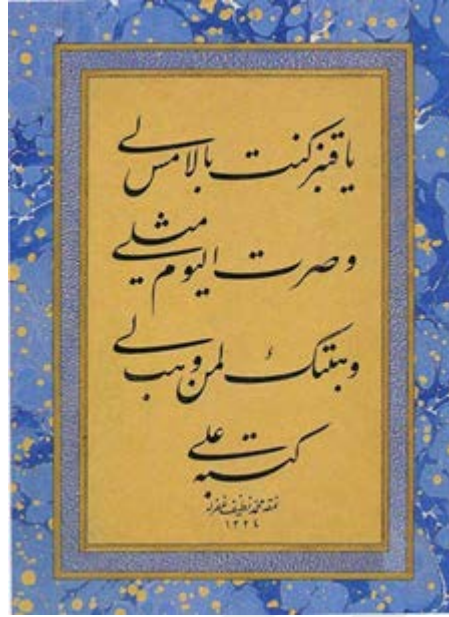 يا قنبر كنت بالامس لي
و صرت اليوم مثلي
وهبتك لمن وهب لي
كتبه علي
نمقه محمد نظيف غفرله
١٣٢٤